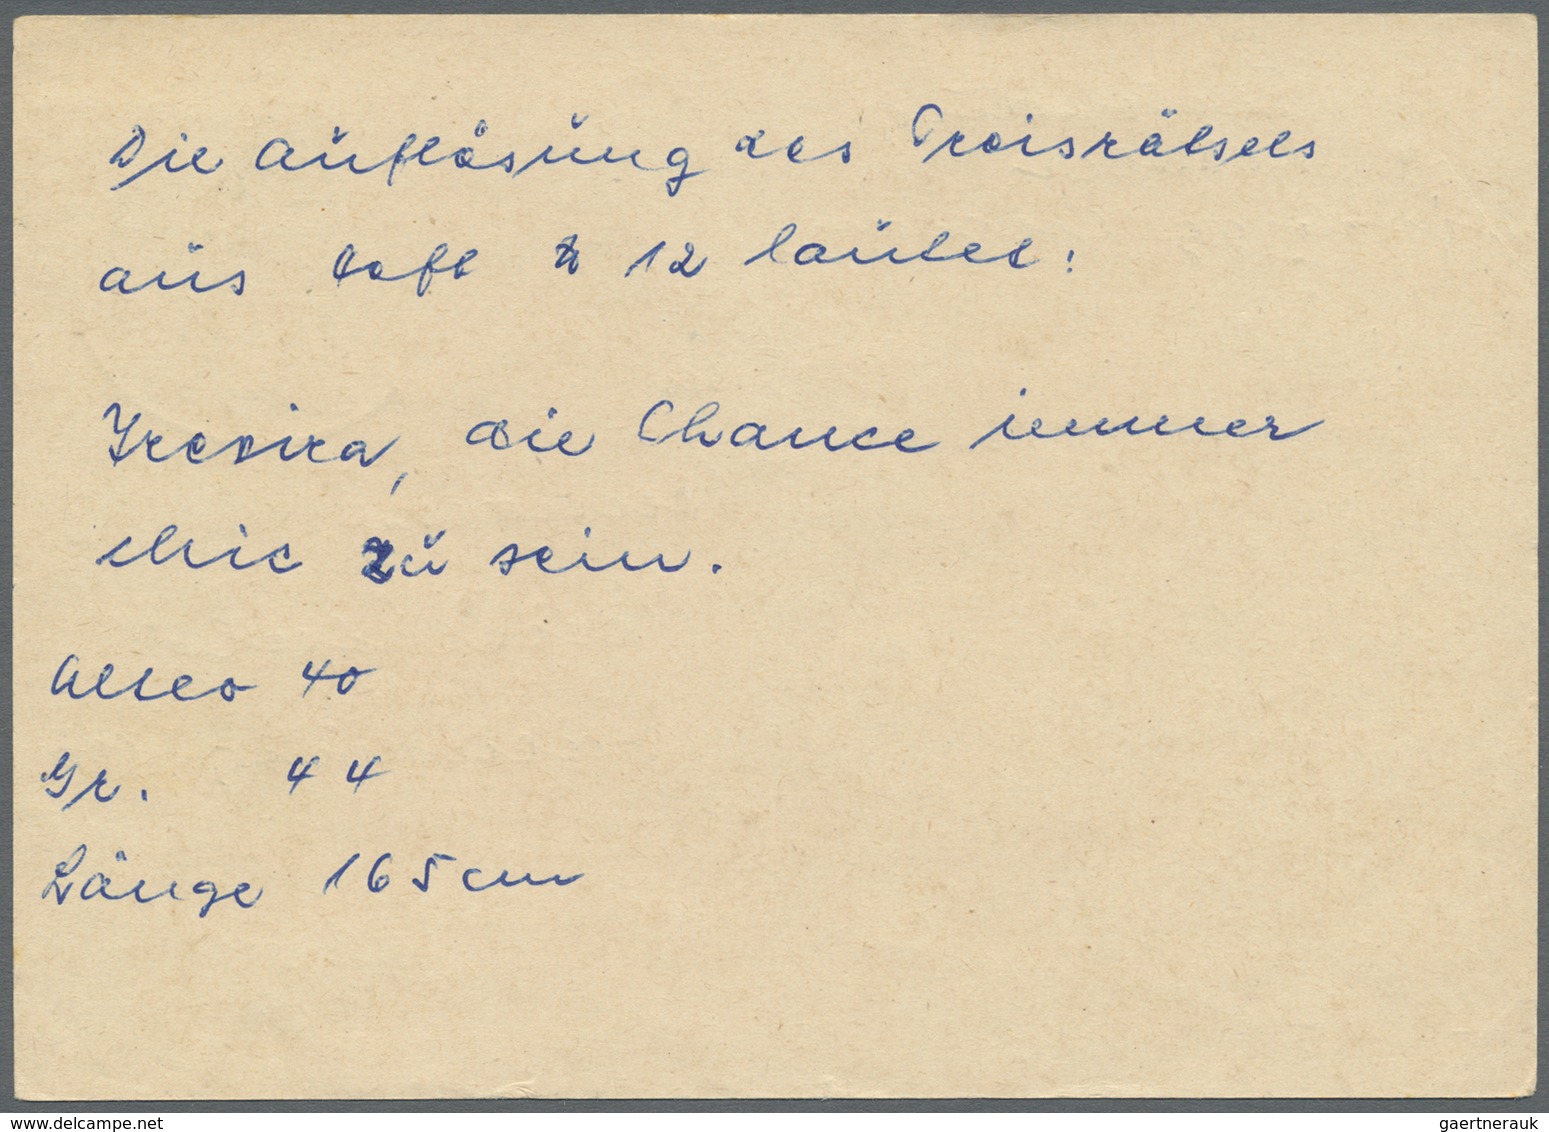 Die Auflösung des Preisrätsels
aus Heft 12 lautet:
Trevira, die Chance immer
chic zu sein.
Alter 40
Gr. 44
Länge 165 cm
gaertnerauk